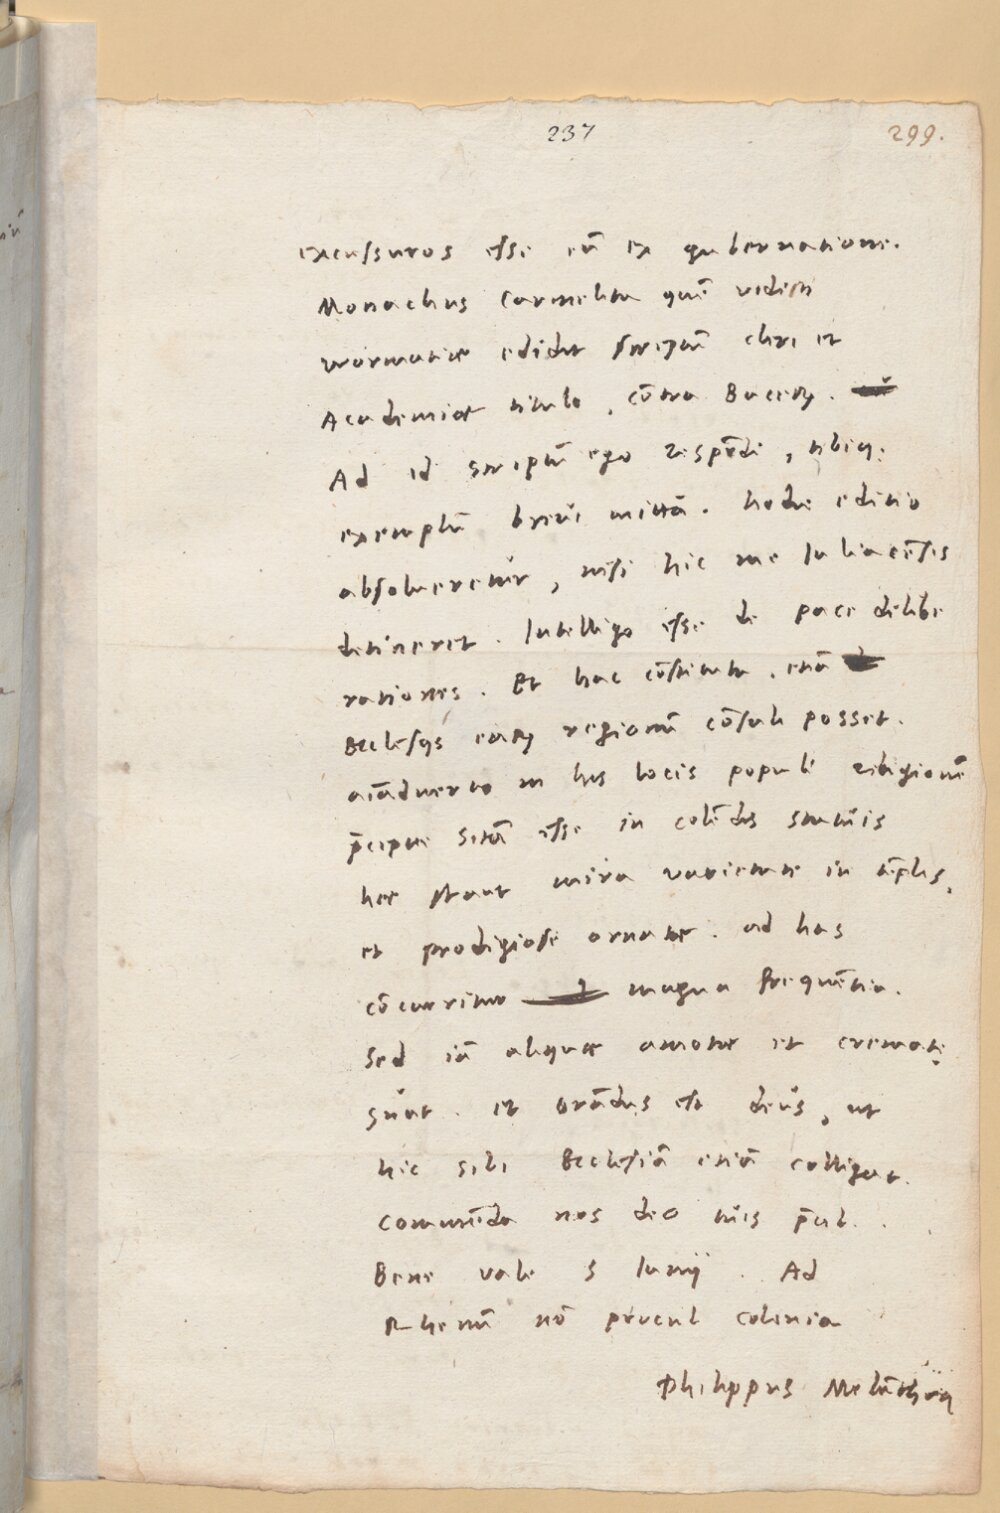 237 299.
excussuros esse eū ex gubernatione.
Monachus Carmelita quē vidisti
wormatiae edidit scriptū cleri et
Academiae titulo, cōtra Bucerū.
Ad id scriptū ego respōdi, tibiq;
exemplū brevi mittā. hodie editio
absolveretur, nisi hic me Iuliacēsis
detineret. Intelligo esse de pace delibe
rationes. Et hac cōstituta, etiā
Ecclesijs earū regionū cōsuli posset.
aīadverto in his locis populi religionē
p̄cipue sitā esse in colēdis statuis
hee stant mira varietate in tēplis,
et prodigiose ornatae. ad has
cōcurritur magna frequētia.
Sed iā aliquae amotae et crematę
sunt. et orādus est deus, ut
hic sibi Ecclesiā etiā colligat.
Commēdo nos deo tuis p̄cib.
Bene vale 5 Iunij. Ad
Rhenū nō procul Colonia
Philippus Melāthon